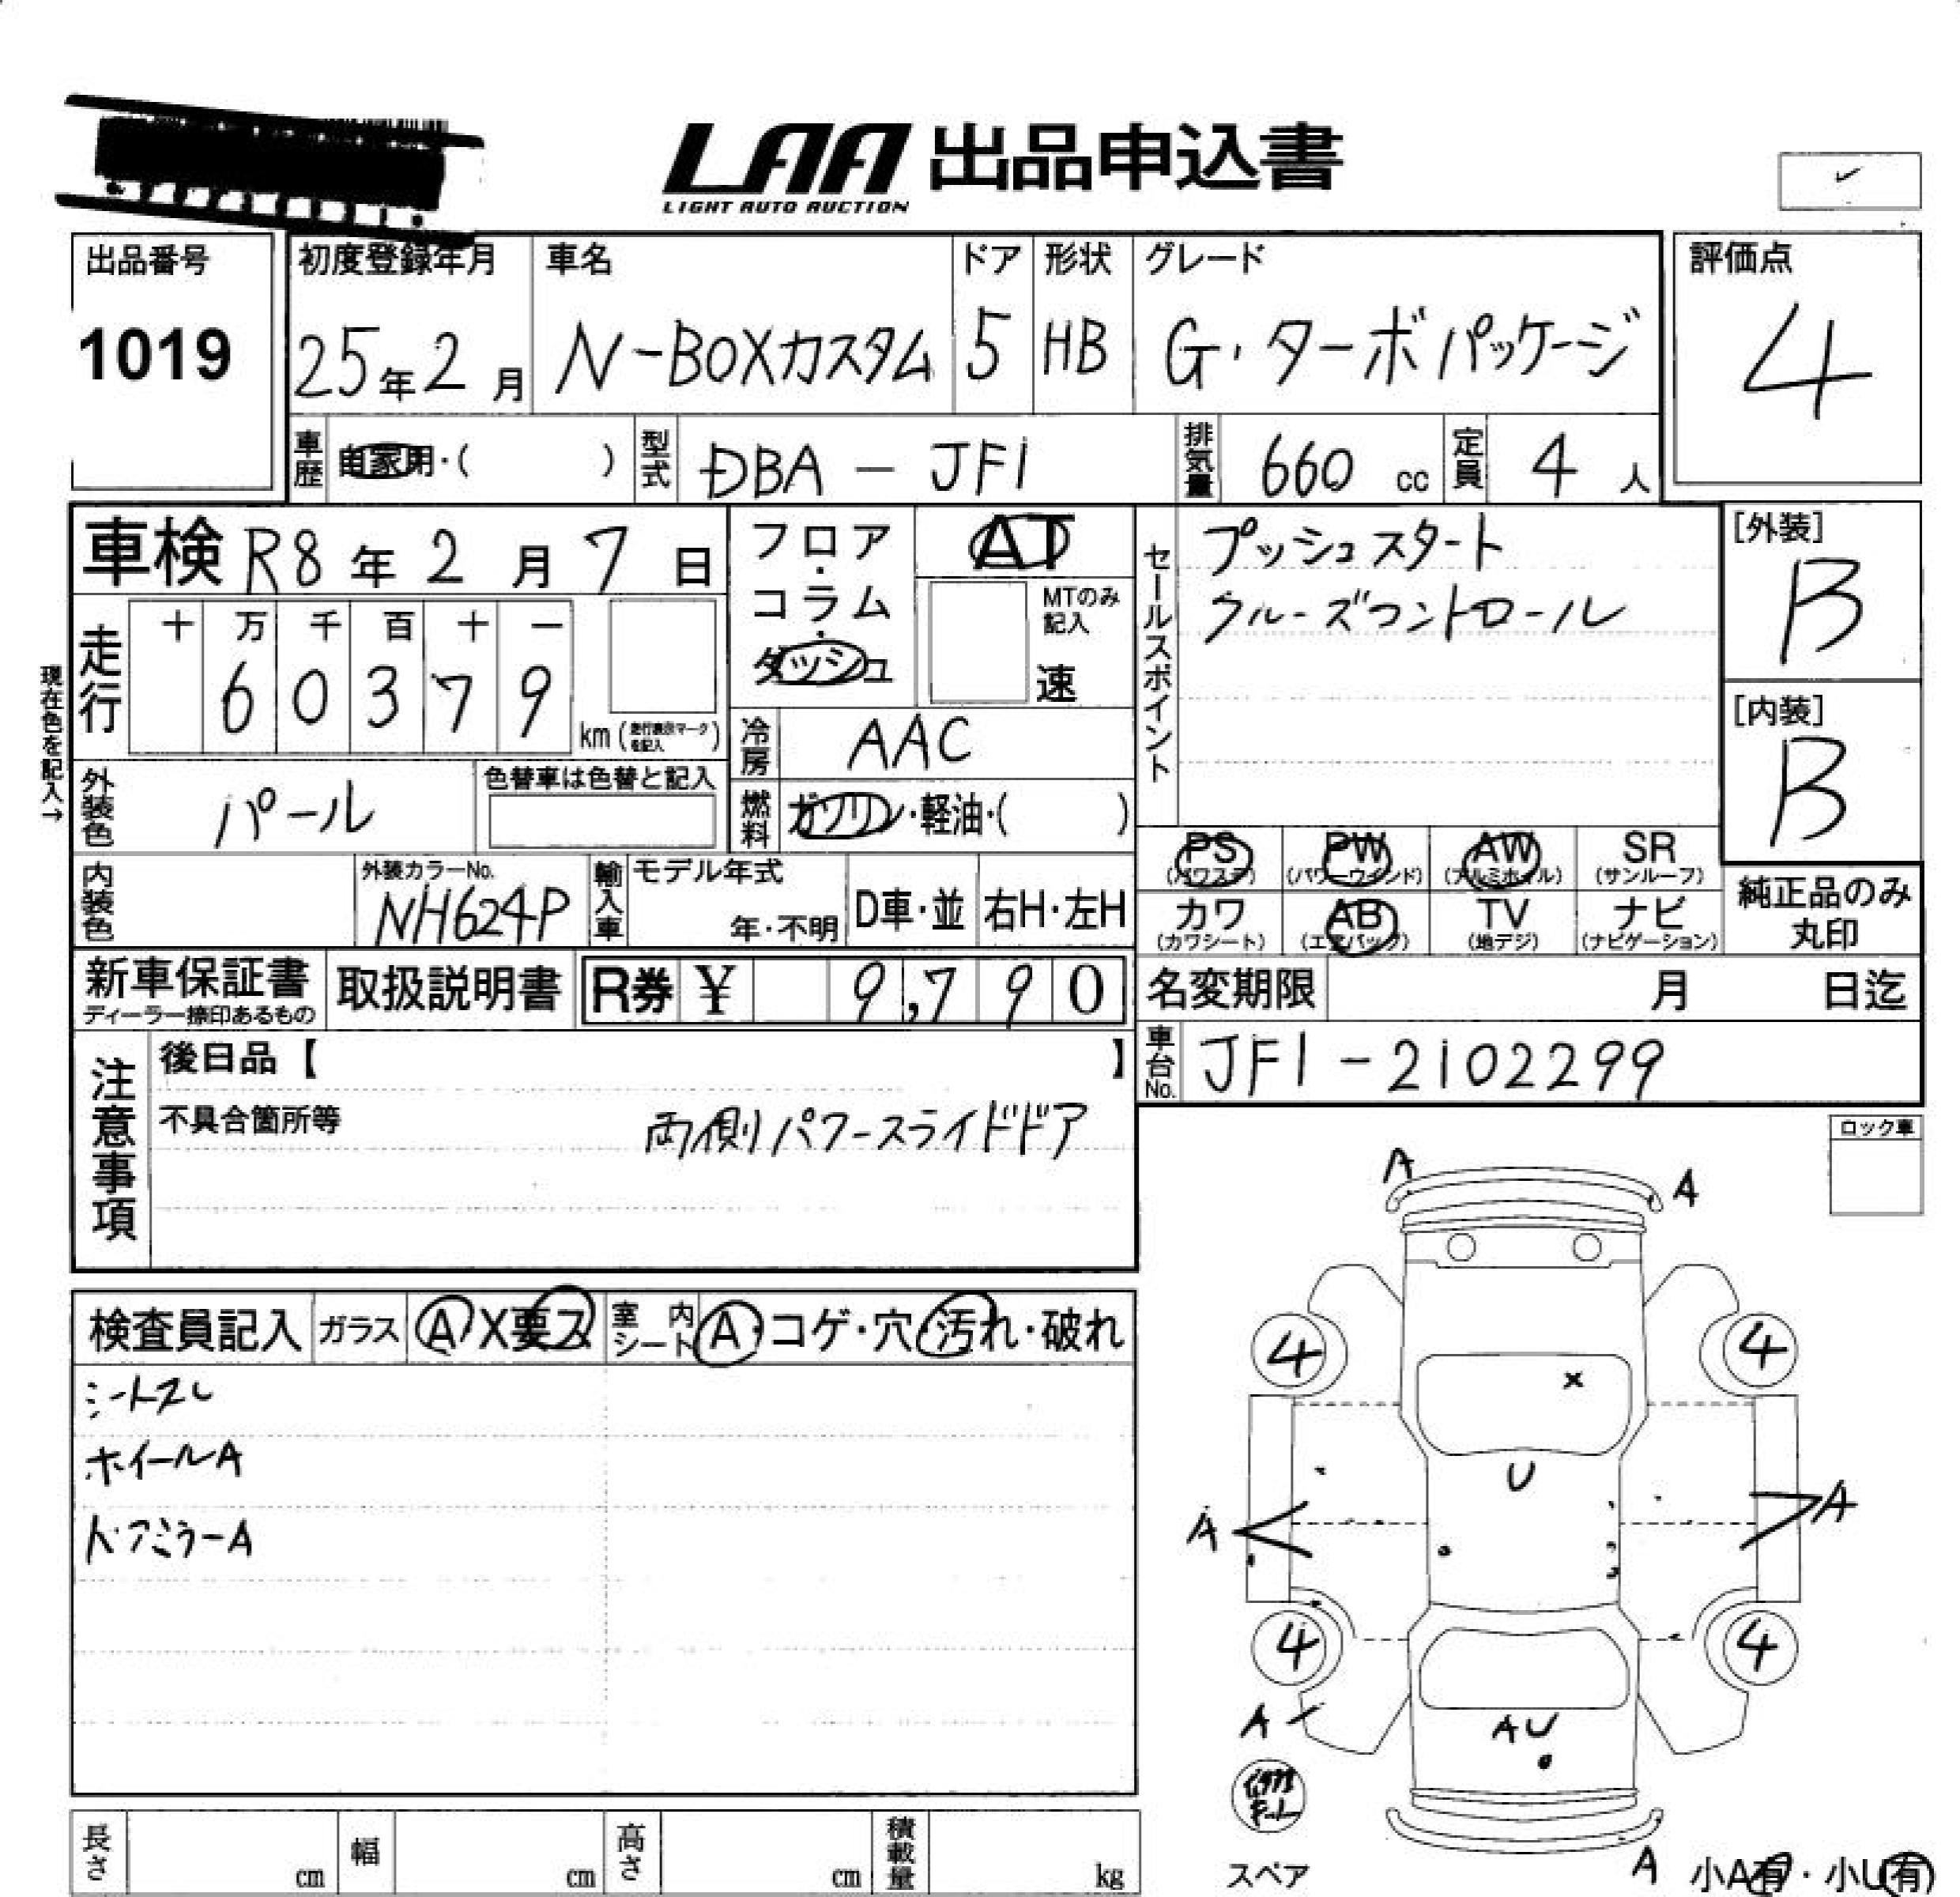 LAA 出品申込書
LIGHT AUTO AUCTION
出品番号
1019
初度登録年月
25年2月
車名
N-BOXカスタム
ドア
5
形状
HB
グレード
G・ターボパッケージ
評価点
4
車歴 自家用・( )
型式 DBA - JF1
排気量 660 cc
定員 4人
車検 R8年2月7日
フロア・コラム・ダッシュ
AT
MTのみ記入
速
セールスポイント
プッシュスタート
クルーズコントロール
[外装]
B
[内装]
B
現在色を記入→
走行
十 万 千 百 十 一
6 0 3 7 9
km (走行表示マークを記入)
冷房 AAC
外装色 パール
色替車は色替と記入
燃料 ガソリン・軽油・( )
PS (パワステ)
PW (パワーウインド)
AW (アルミホイル)
SR (サンルーフ)
カワ (カワシート)
AB (エアバック)
TV (地デジ)
ナビ (ナビゲーション)
純正品のみ
丸印
内装色
外装カラーNo.
NH624P
輸入車
モデル年式
年・不明
D車・並
右H・左H
新車保証書
ディーラー捺印あるもの
取扱説明書
R券 ¥ 9,790
名変期限 月 日迄
車台No. JF1-2102299
注意事項
後日品【 】
不具合箇所等
両側パワースライドドア
ロック車
検査員記入
ガラス A X要ス
室内シート A・コゲ・穴・汚れ・破れ
シートスレ
ホイールA
ドアミラーA
A
A
4
4
X
U
A
A
4
4
A
AU
スペア
A
小A有・小U有
長さ cm
幅 cm
高さ cm
積載量 kg